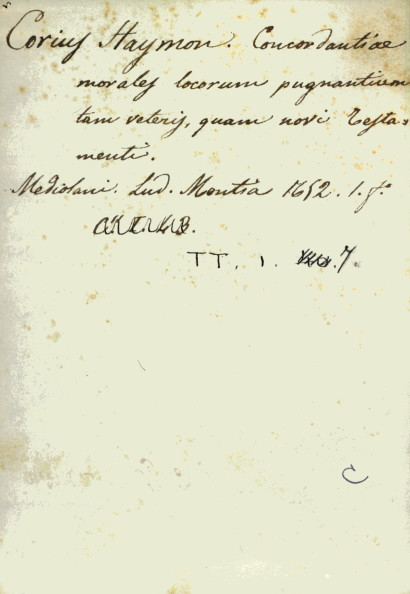 Corius Haymon. Concordantiae
morales locorum pugnantium
tam veteris, quam novi Testa-
menti.
Mediolani. Lud. Montia 1652. 1. fº.
TT. 1. 7.
C